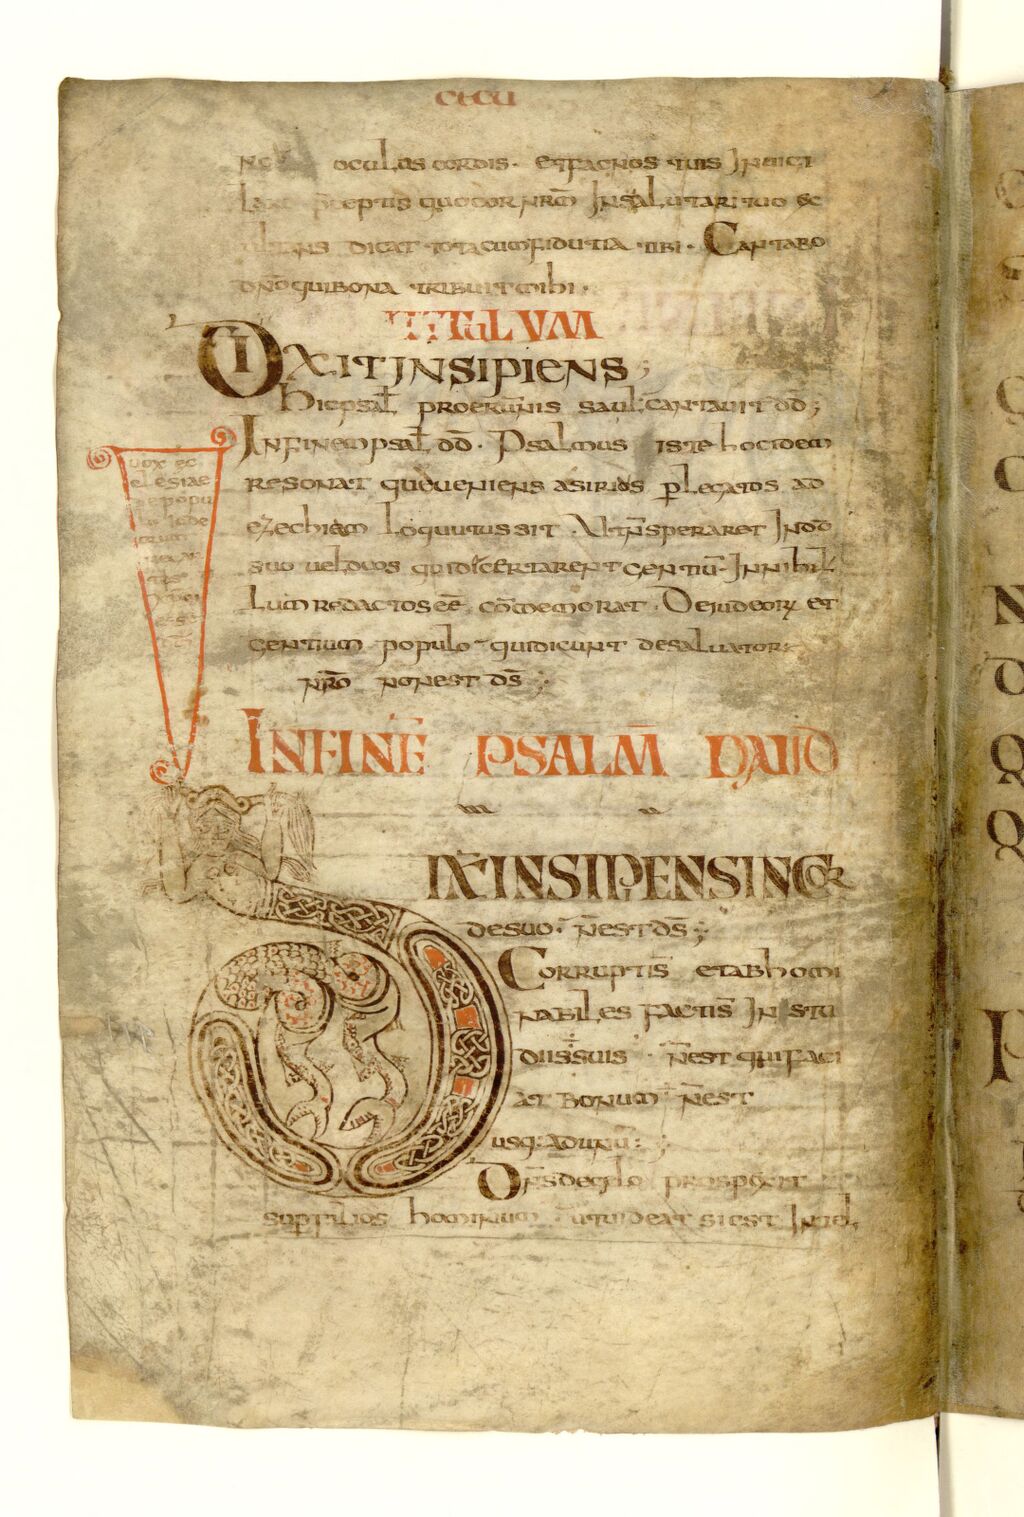 oculos cordis · et fac nos tuis Inuicti
p̄ceptis quo cor nr̄m Insalutari tuo
dicat tota cumfidutia tibi · Cantabo
dn̄o quibona tribuit mihi ·
TITULVM
DIXIT INSIPIENS ;
Hic psal̄ pro erumnis saul cantauit dd̄ ;
In finem psal̄ dd̄ · Psalmus iste hoc idem
resonat qu̇d ueniens asirios p legatos ad
ezechiam loquutus sit · Ut n̄ speraret In dō
suo uel duos qui dicertarent gentiū · In nihil
lum redactos eē com̄emorat · De iudeorꝝ et
gentium populo qui dicunt de saluator
nr̄o non est ds̄ ;
uox ec
clesiae
INFINĒ PSALM̄ DAUID
DIX̄ INSIPIENS IN COR
de suo · n̄ est ds̄ ;
Corrupti s̄ et abhomi
nabiles facti s̄ In stu
diis suis · n̄ est qui faci
at bonum n̄ est
usq: ad unū : ;
Dn̄s de celo prospexit
sup filios hominum ut uideat si est Intel